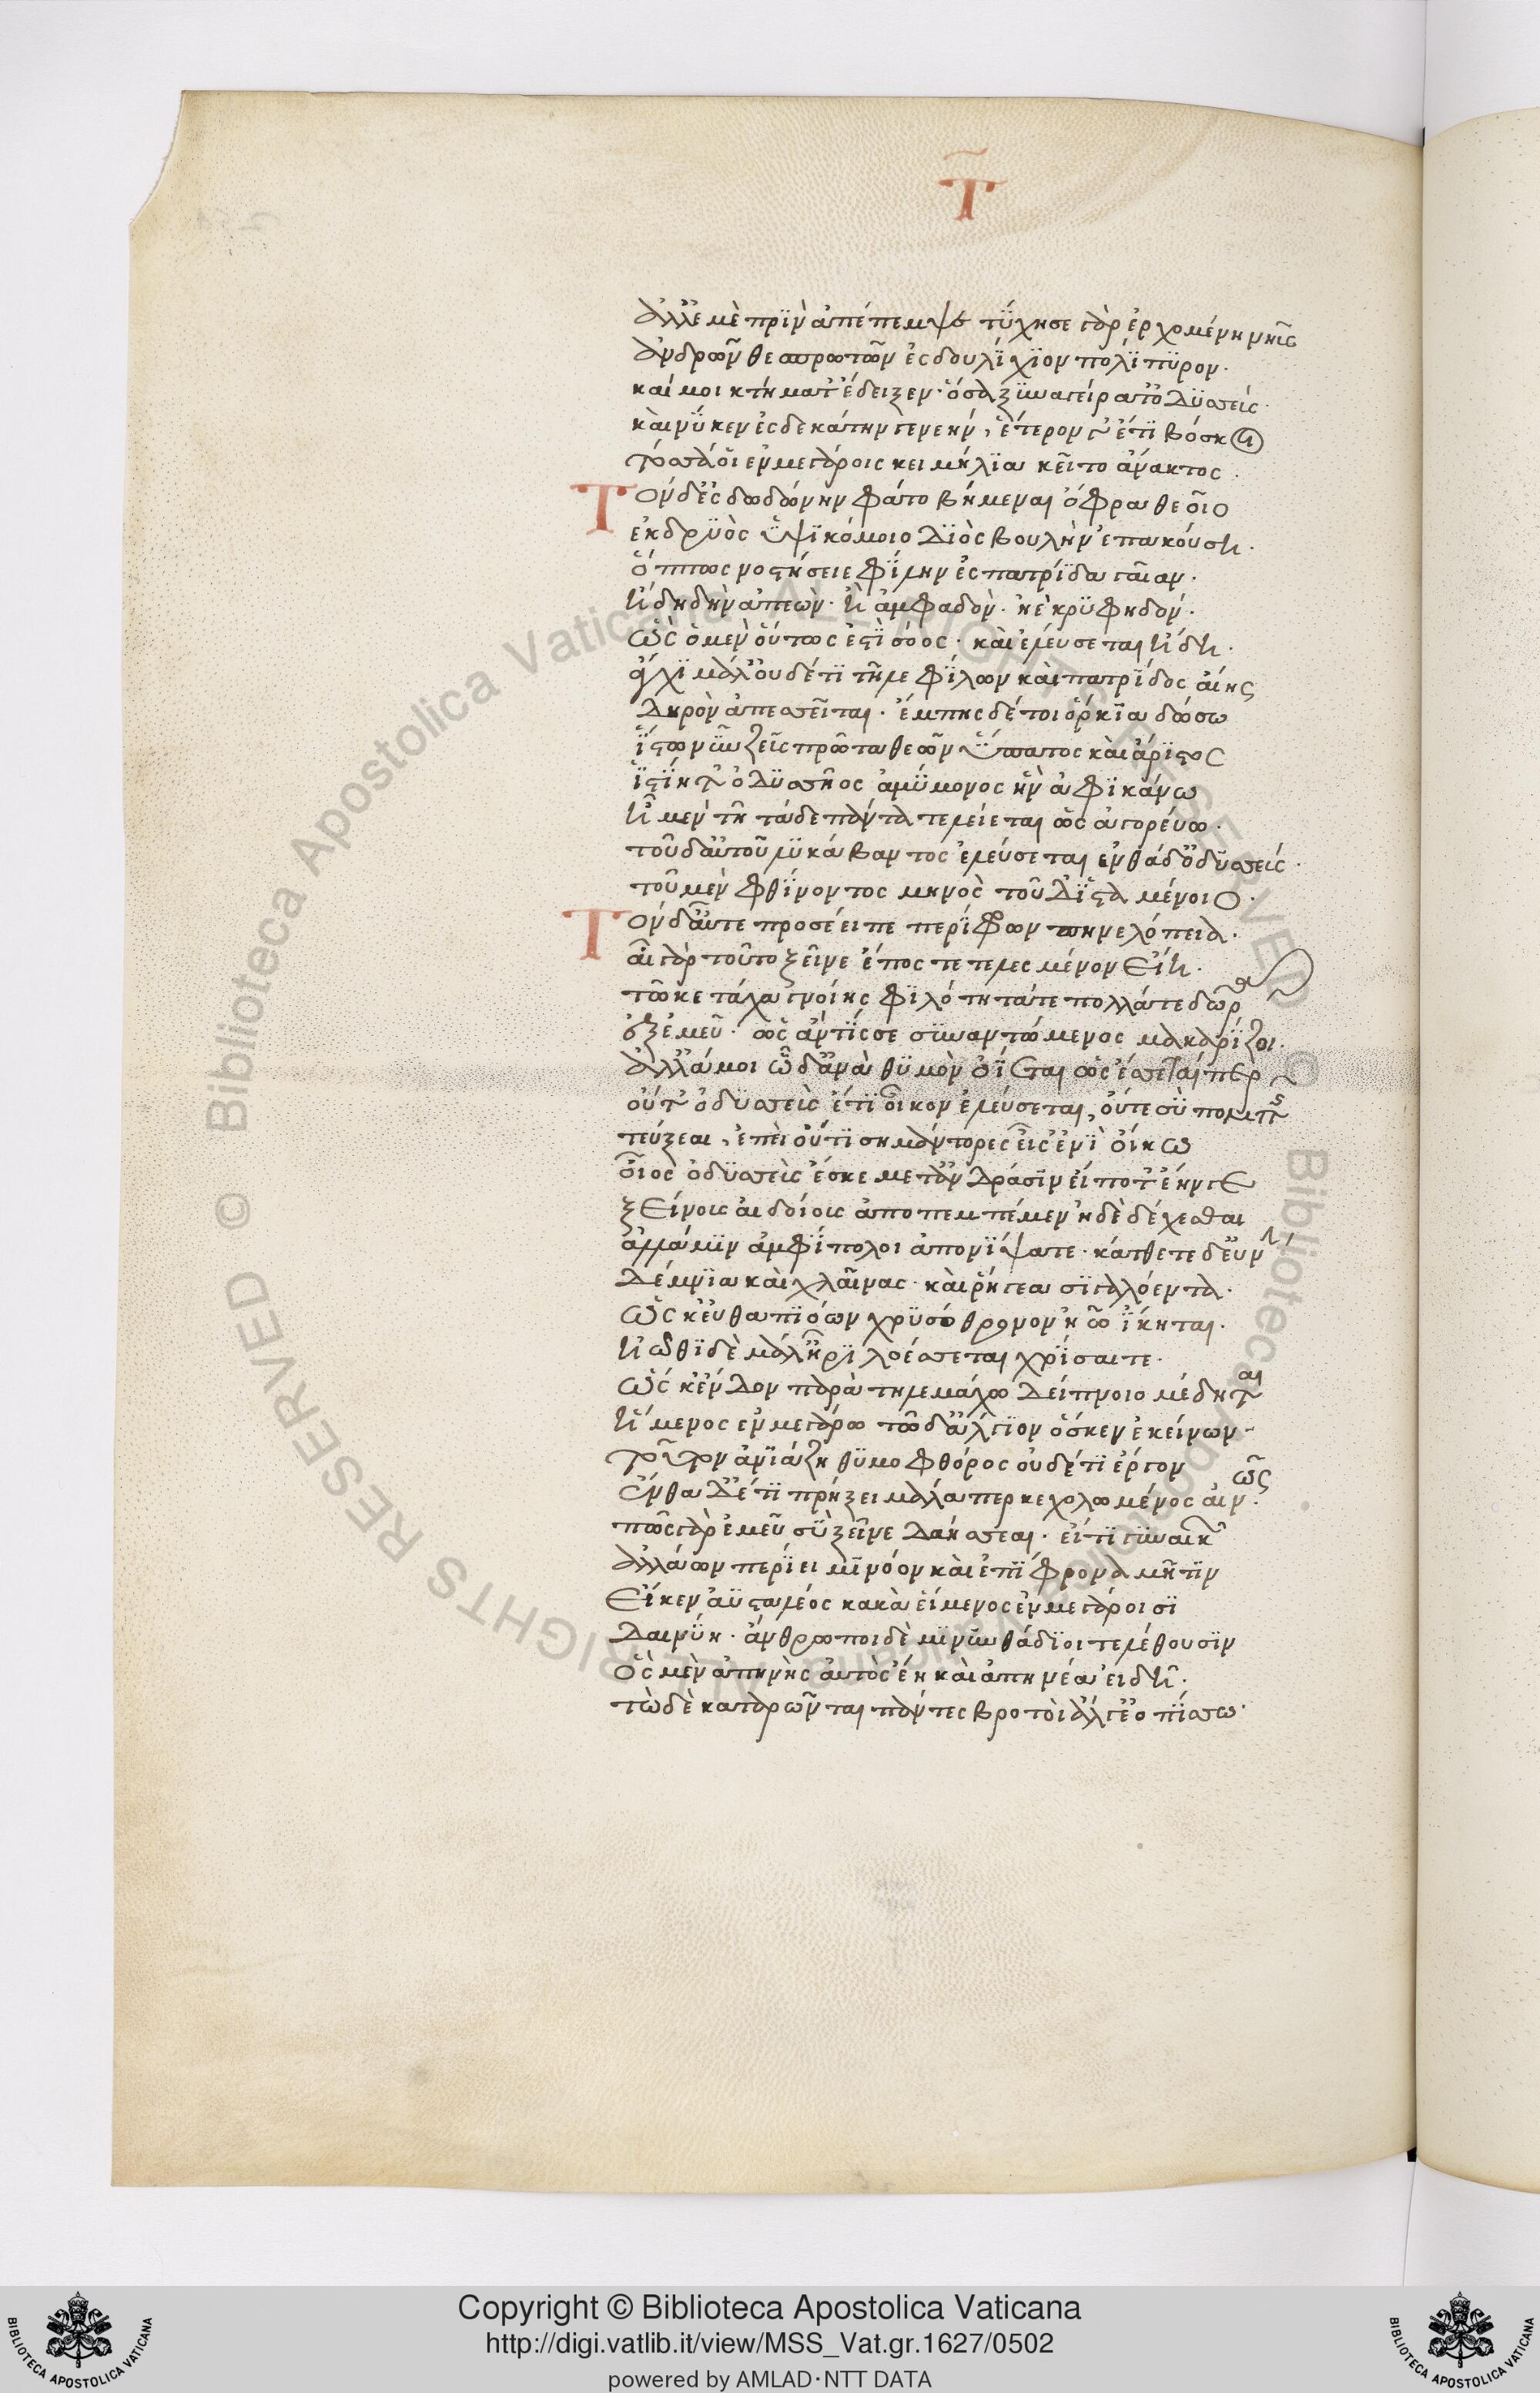 Τ
ἀλλ' ἐμὲ πρϊν ἀπέπεμψε τύχησε γὰρ ἐρχομένη νηῦς
ἀνδρῶν θεσπρωτῶν ἐς δουλίχϊον πολύπυρον·
καί μοι κτήματ' ἔδειξεν· ὅσα ξυναγείρατ' ὀδυσσεύς·
καὶ νύ κεν ἐς δεκάτην γενεήν, ἕτερον γ' ἔτι βόσκοι
τόσσα οἱ ἐν μεγάροις κειμήλια κεῖτο ἄνακτος·
Τὸν δ' ἐς δωδώνην φάτο βήμεναι ὄφρα θεοῖο
ἐκ δρυὸς ὑψικόμοιο διὸς βουλὴν ἐπακούσῃ·
ὅππως νοστήσειε φίλην ἐς πατρίδα γαῖαν·
ἤδη δὴν ἀπεών· ἢ ἀμφαδόν· ἠὲ κρυφηδόν·
ὣς ὁ μὲν οὕτως ἐστὶ σόος· καὶ ἐλεύσεται ἤδη·
ἄγχι μάλ' οὐδέ τι τῆλε φίλων καὶ πατρίδος αἴης
δηρὸν ἀπεσσεῖται· ἔμπης δέ τοι ὅρκια δώσω
ἴστω νῦν ζεὺς πρῶτα θεῶν ὕπατος καὶ ἄριστος
ἱστίη τ' ὀδυσσῆος ἀμύμονος ἣν ἀφικάνω
ἦ μέν τη τάδε πάντα τελείεται ὡς ἀγορεύω·
τοῦ δ' αὐτοῦ λυκάβαντος ἐλεύσεται ἐνθάδ' ὀδυσσεύς·
τοῦ μὲν φθίνοντος μηνὸς τοῦ δ' ἱσταμένοιο·
Τὸν δ' αὖτε προσέειπε περίφρων πηνελόπεια·
αἲ γὰρ τοῦτο ξεῖνε ἔπος τετελεσμένον εἴη·
τῶ κε τάχα γνοίης φιλότητά τε πολλά τε δῶρα
ἐξ ἐμεῦ· ὡς ἄν τίς σε συναντώμενος μακαρίζοι·
ἀλλά μοι ὧδ' ἀνὰ θυμὸν ὀΐεται ὡς ἔσεταί περ
οὔτ' ὀδυσσεὺς ἔτι οἶκον ἐλεύσεται, οὔτε σὺ πομπῆς
τεύξεαι, ἐπεὶ οὔ τι σημάντορες εἰς ἐνὶ οἴκω
οἷος ὀδυσσεὺς ἔσκε μετ' ἀνδράσιν εἴ ποτ' ἔην γε
ξείνοις αἰδοίοις ἀποπεμπέμεν ἠδὲ δέχεσθαι
ἀλλά μιν ἀμφίπολοι ἀπονίψατε· κάτθετε δ' εὐνὴν
δέμνια καὶ χλαίνας· καὶ ῥήγεα σιγαλόεντα·
ὥς κ' εὖ θαλπιόων χρυσόθρονον ἠῶ ἵκηται·
ἠῶθι δὲ μάλ' ἦρι λοέσσεται χρίσαι τε·
ὥς κ' ἔνδον παρὰ τηλεμάχω δείπνοιο μέδηται
ἥμενος ἐν μεγάρω τῶ δ' ἄλγιον ὅς κεν ἐκείνων
τοῦτον ἀνιάζῃ θυμοφθόρος οὐδέ τι ἔργον
ἐνθάδ' ἔτι πρήξει μάλα περ κεχολωμένος αἰνῶς
πῶς γὰρ ἐμεῦ σὺ ξεῖνε δαήσεαι· εἴ τι γυναικῶν
ἀλλάων περίειμι νόον καὶ ἐπίφρονα μῆτιν
εἴ κεν ἀϋσταλέος κακὰ εἱμένος ἐν μεγάροισι
δαινύῃ· ἄνθρωποι δὲ μινυνθάδιοι τελέθουσιν
ὃς μὲν ἀπηνὴς αὐτὸς ἔῃ καὶ ἀπηνέα εἰδῇ·
τῶ δὲ καταρῶνται πάντες βροτοὶ ἄλγε' ὀπίσσω·
Copyright © Biblioteca Apostolica Vaticana
http://digi.vatlib.it/view/MSS_Vat.gr.1627/0502
powered by AMLAD·NTT DATA
BIBLIOTECA APOSTOLICA VATICANA
BIBLIOTECA APOSTOLICA VATICANA
© Biblioteca Apostolica Vaticana ALL RIGHTS RESERVED © Biblioteca Apostolica Vaticana ALL RIGHTS RESERVED